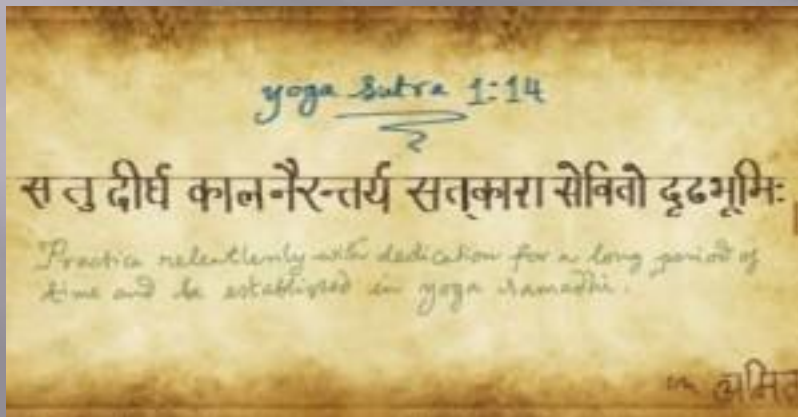 yoga Sutra 1:14
स तु दीर्घ काल नैरन्तर्य सत्कारा सेवितो दृढभूमिः
Practice relentlessly with dedication for a long period of
time and be established in yoga samadhi.